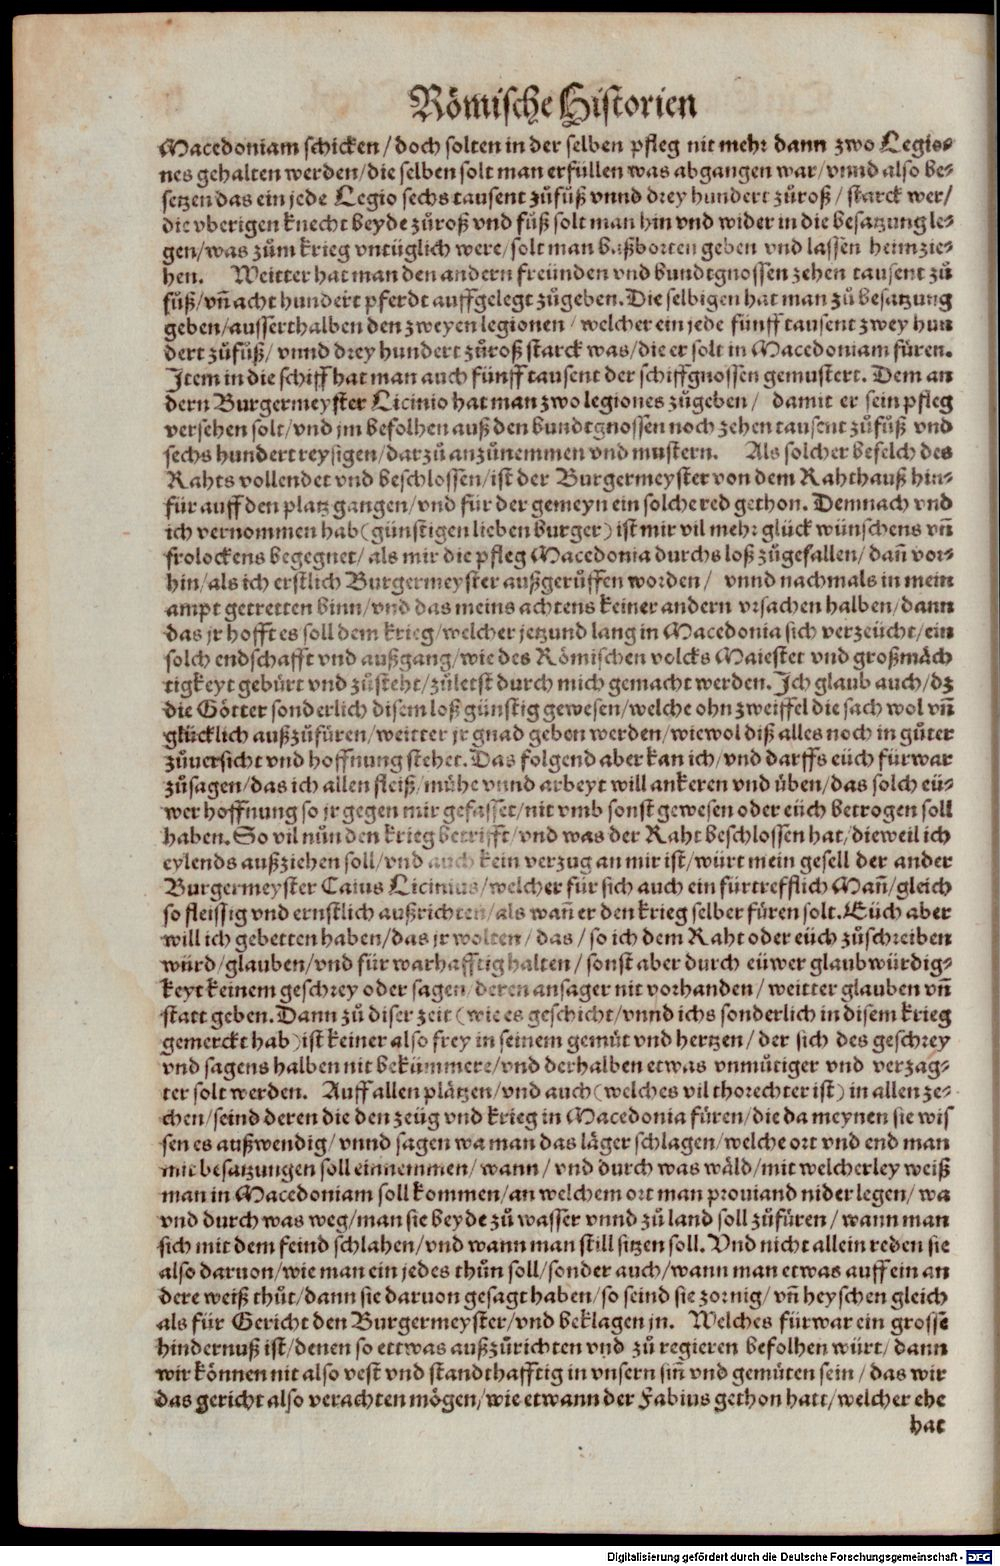 Römische Historien
Macedoniam schicken / doch solten in der selben pfleg nit mehr dann zwo Legio⸗
nes gehalten werden/die selben solt man erfüllen was abgangen war/vnnd also be⸗
setzen das ein jede Legio sechs tausent zůfůß vnnd drey hundert zůroß / starck wer/
die vberigen knecht beyde zůroß vnd fůß solt man hin vnd wider in die besatzung le⸗
gen/was zům krieg vntüglich were/solt man baßborten geben vnd lassen heimzie⸗
hen. Weitter hat man den andern freünden vnd bundtgnossen zehen tausent zů
fůß/vñ acht hundert pferdt auffgelegt zůgeben. Die selbigen hat man zů besatzung
geben/ausserthalben den zweyen legionen / welcher ein jede fünff tausent zwey hun
dert zůfůß/ vnnd drey hundert zůroß starck was/die er solt in Macedoniam füren.
Item in die schiff hat man auch fünff tausent der schiffgnossen gemustert. Dem an
dern Burgermeyster Licinio hat man zwo legiones zůgeben/ damit er sein pfleg
versehen solt/vnd jm befolhen auß den bundtgnossen noch zehen tausent zůfůß vnd
sechs hundert reysigen/darzů anzůnemmen vnd mustern. Als solcher befelch des
Rahts vollendet vnd beschlossen/ist der Burgermeyster von dem Rahthauß hin⸗
für auff den platz gangen/vnd für der gemeyn ein solche red gethon. Demnach vnd
ich vernommen hab (günstigen lieben burger) ist mir vil mehr glück wünschens vñ
frolockens begegnet/ als mir die pfleg Macedonia durchs loß zůgefallen/dañ vor⸗
hin/als ich erstlich Burgermeyster außgerůffen worden/ vnnd nachmals in mein
ampt getretten binn/vnd das meins achtens keiner andern vrsachen halben/dann
das jr hofft es soll dem krieg/welcher jetzund lang in Macedonia sich verzeücht/ein
solch endschafft vnd außgang/wie des Römischen volcks Maiestet vnd großmäch
tigkeyt gebürt vnd zůsteht/zůletst durch mich gemacht werden. Ich glaub auch/dz
die Götter sonderlich disem loß günstig gewesen/welche ohn zweiffel die sach wol vñ
glücklich außzůfüren/weitter jr gnad geben werden/wiewol diß alles noch in gůter
zůuersicht vnd hoffnung stehet. Das folgend aber kan ich/vnd darffs eüch fürwar
zůsagen/das ich allen fleiß/mühe vnnd arbeyt will ankeren vnd üben/das solch eü⸗
wer hoffnung so jr gegen mir gefasset/nit vmb sonst gewesen oder eüch betrogen soll
haben. So vil nůn den krieg betrifft/vnd was der Raht beschlossen hat/dieweil ich
eylends außziehen soll/vnd auch kein verzug an mir ist/würt mein gesell der ander
Burgermeyster Caius Licinius/welcher für sich auch ein fürtrefflich Mañ/gleich
so fleissig vnd ernstlich außrichten/als wañ er den krieg selber füren solt. Eüch aber
will ich gebetten haben/das jr wolten/ das / so ich dem Raht oder eüch zůschreiben
würd/glauben/vnd für warhafftig halten / sonst aber durch eüwer glaubwürdig⸗
keyt keinem geschrey oder sagen/deren ansager nit vorhanden/ weitter glauben vñ
statt geben. Dann zů diser zeit (wie es geschicht/vnnd ichs sonderlich in disem krieg
gemerckt hab) ist keiner also frey in seinem gemüt vnd hertzen/ der sich des geschrey
vnd sagens halben nit bekümmere/vnd derhalben etwas vnmůtiger vnd verzag⸗
ter solt werden. Auff allen plätzen/vnd auch (welches vil thorechter ist) in allen ze⸗
chen/seind deren die den zeüg vnd krieg in Macedonia füren/die da meynen sie wis
sen es außwendig/ vnnd sagen wa man das läger schlagen/welche ort vnd end man
mit besatzungen soll einnemmen/wann/ vnd durch was wäld/mit welcherley weiß
man in Macedoniam soll kommen/an welchem ort man prouiand nider legen/ wa
vnd durch was weg/man sie beyde zů wasser vnnd zů land soll zůfüren / wann man
sich mit dem feind schlahen/vnd wann man still sitzen soll. Vnd nicht allein reden sie
also daruon/wie man ein jedes thůn soll/sonder auch/wann man etwas auff ein an
dere weiß thůt/dann sie daruon gesagt haben/so seind sie zornig/vñ heyschen gleich
als für Gericht den Burgermeyster/vnd beklagen jn. Welches fürwar ein grosse
hindernuß ist/denen so ettwas außzůrichten vnd zů regieren befolhen würt/ dann
wir können nit also vest vnd standthafftig in vnsern siñ vnd gemüten sein / das wir
das gericht also verachten mögen/wie etwann der Fabius gethon hatt/welcher ehe
hat
Digitalisierung gefördert durch die Deutsche Forschungsgemeinschaft - DFG